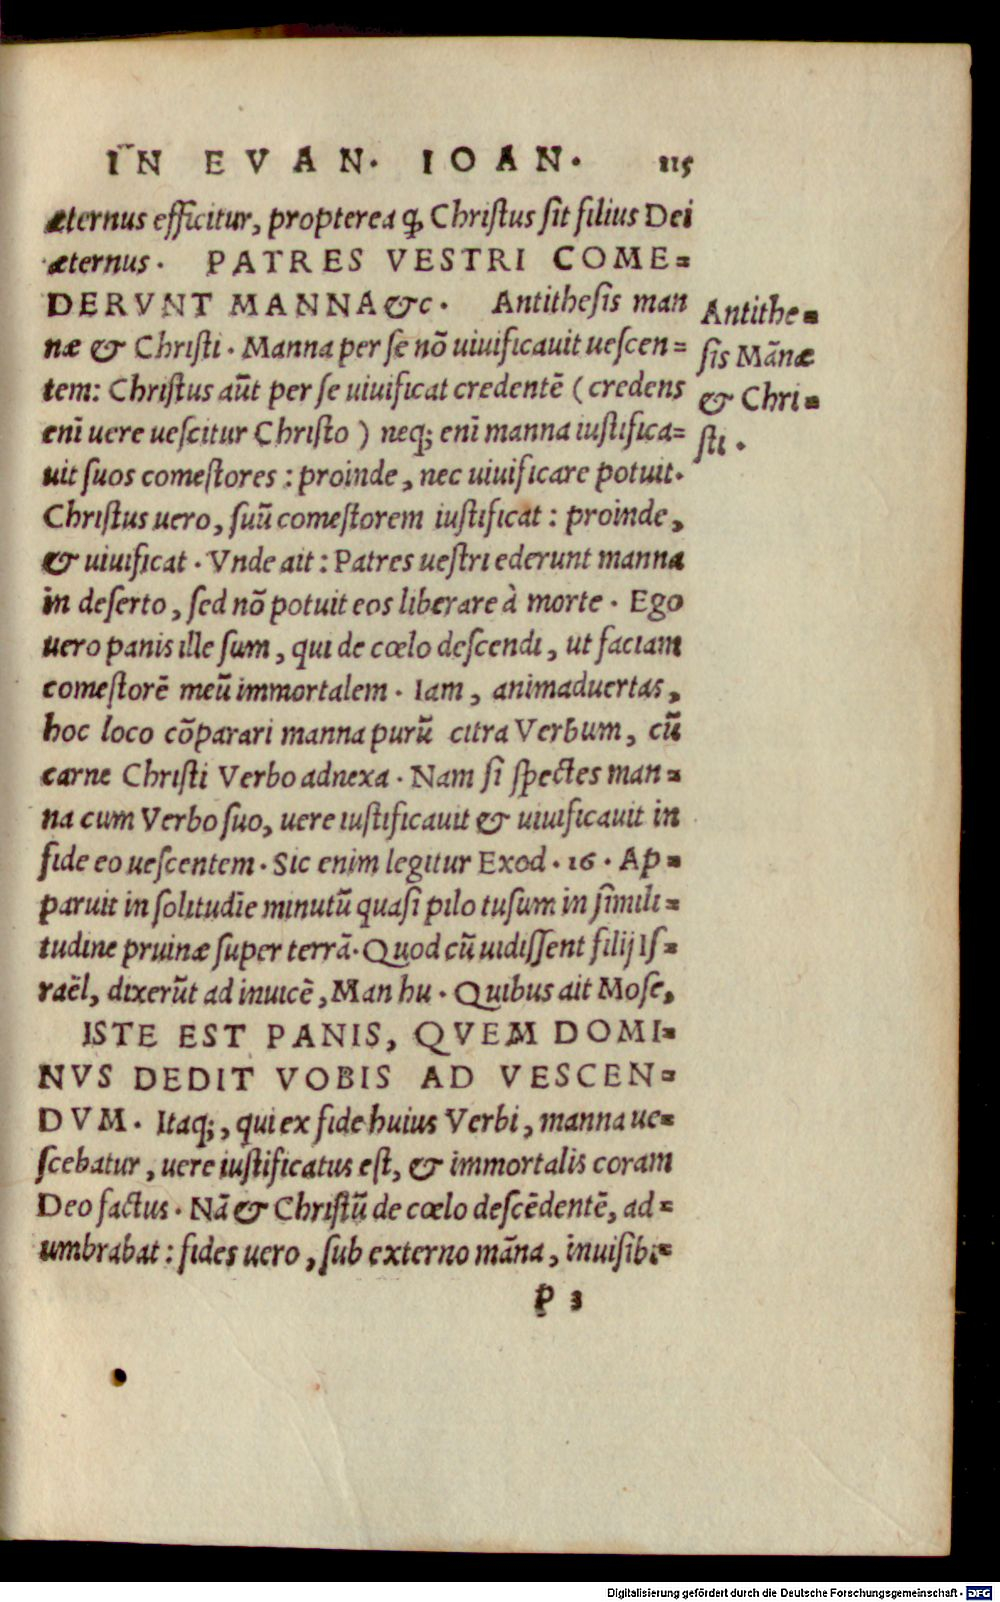 IN EVAN. IOAN. 115
æternus efficitur, propterea ꝙ Christus sit filius Dei
æternus. PATRES VESTRI COME=
DERVNT MANNA &c. Antithesis man
næ & Christi. Manna per se nō uiuificauit uescen=
tem: Christus aūt per se uiuificat credentē (credens
enī uere uescitur Christo) neq; enī manna iustifica=
uit suos comestores: proinde, nec uiuificare potuit.
Christus uero, suū comestorem iustificat: proinde,
& uiuificat. Vnde ait: Patres uestri ederunt manna
in deserto, sed nō potuit eos liberare à morte. Ego
uero panis ille sum, qui de cœlo descendi, ut faciam
comestorē meū immortalem. Iam, animaduertas,
hoc loco cōparari manna purū citra Verbum, cū
carne Christi Verbo adnexa. Nam si spectes man=
na cum Verbo suo, uere iustificauit & uiuificauit in
fide eo uescentem. Sic enim legitur Exod. 16. Ap=
paruit in solitudīe minutū quasi pilo tusum in simili=
tudine pruinæ super terrā. Quod cū uidissent filij Is=
raël, dixerūt ad inuicē, Man hu. Quibus ait Mose,
ISTE EST PANIS, QVEM DOMI=
NVS DEDIT VOBIS AD VESCEN=
DVM. Itaq;, qui ex fide huius Verbi, manna ue=
scebatur, uere iustificatus est, & immortalis coram
Deo factus. Nā & Christū de cœlo descēdentē, ad=
umbrabat: fides uero, sub externo māna, inuisibi=
P 3
Antithe=
sis Mānæ
& Chri=
sti.
Digitalisierung gefördert durch die Deutsche Forschungsgemeinschaft - DFG